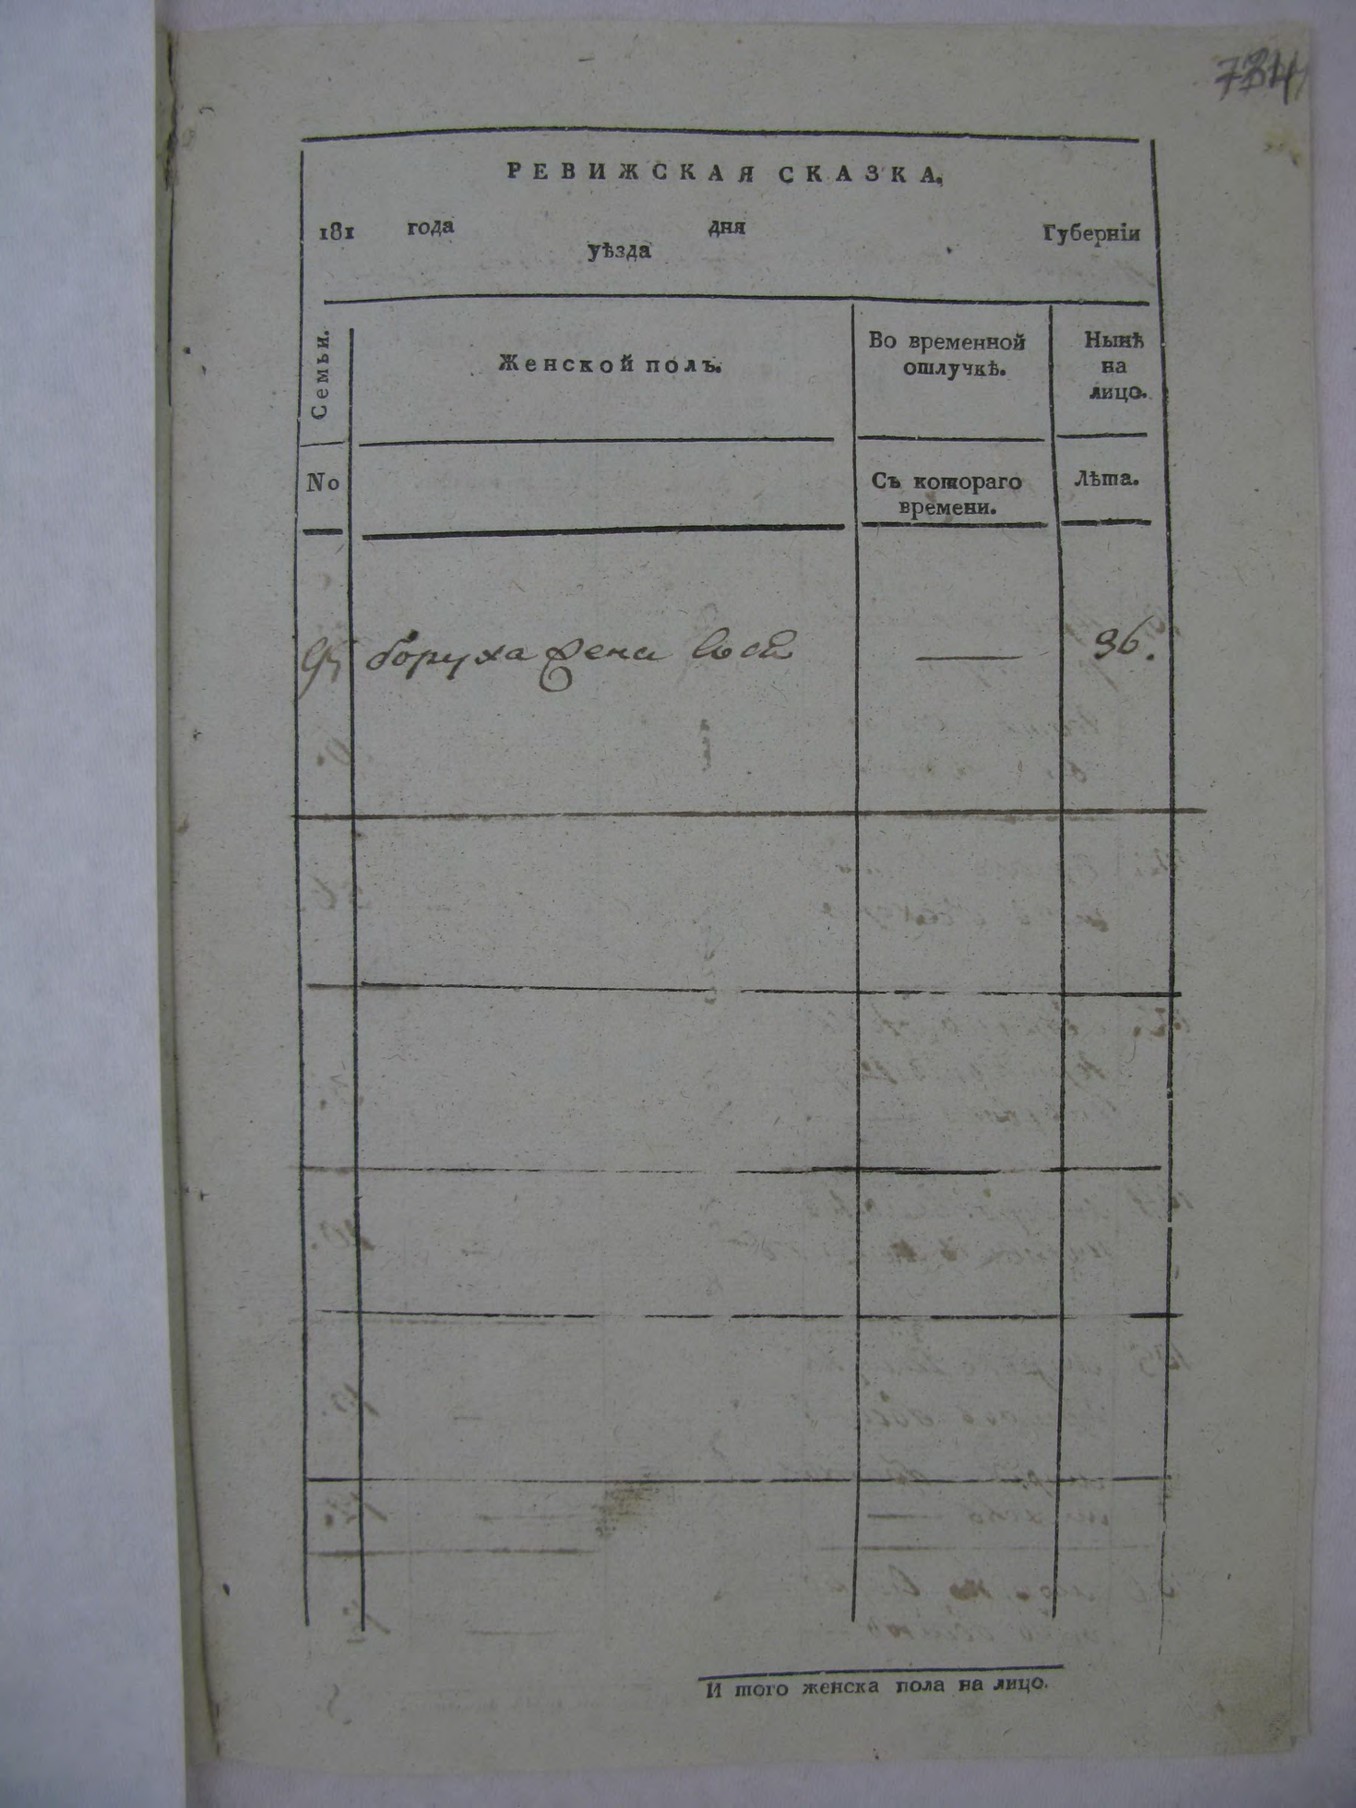 РЕВИЖСКАЯ СКАЗКА.
181 года дня Губерніи
уѣзда
Семьи.
Женской полъ.
Во временной
отлучкѣ.
Нынѣ
на
лицо.
No
Съ котораго
времени.
Лѣта.
95 боруха жена — 36.
И того женска пола на лицо.